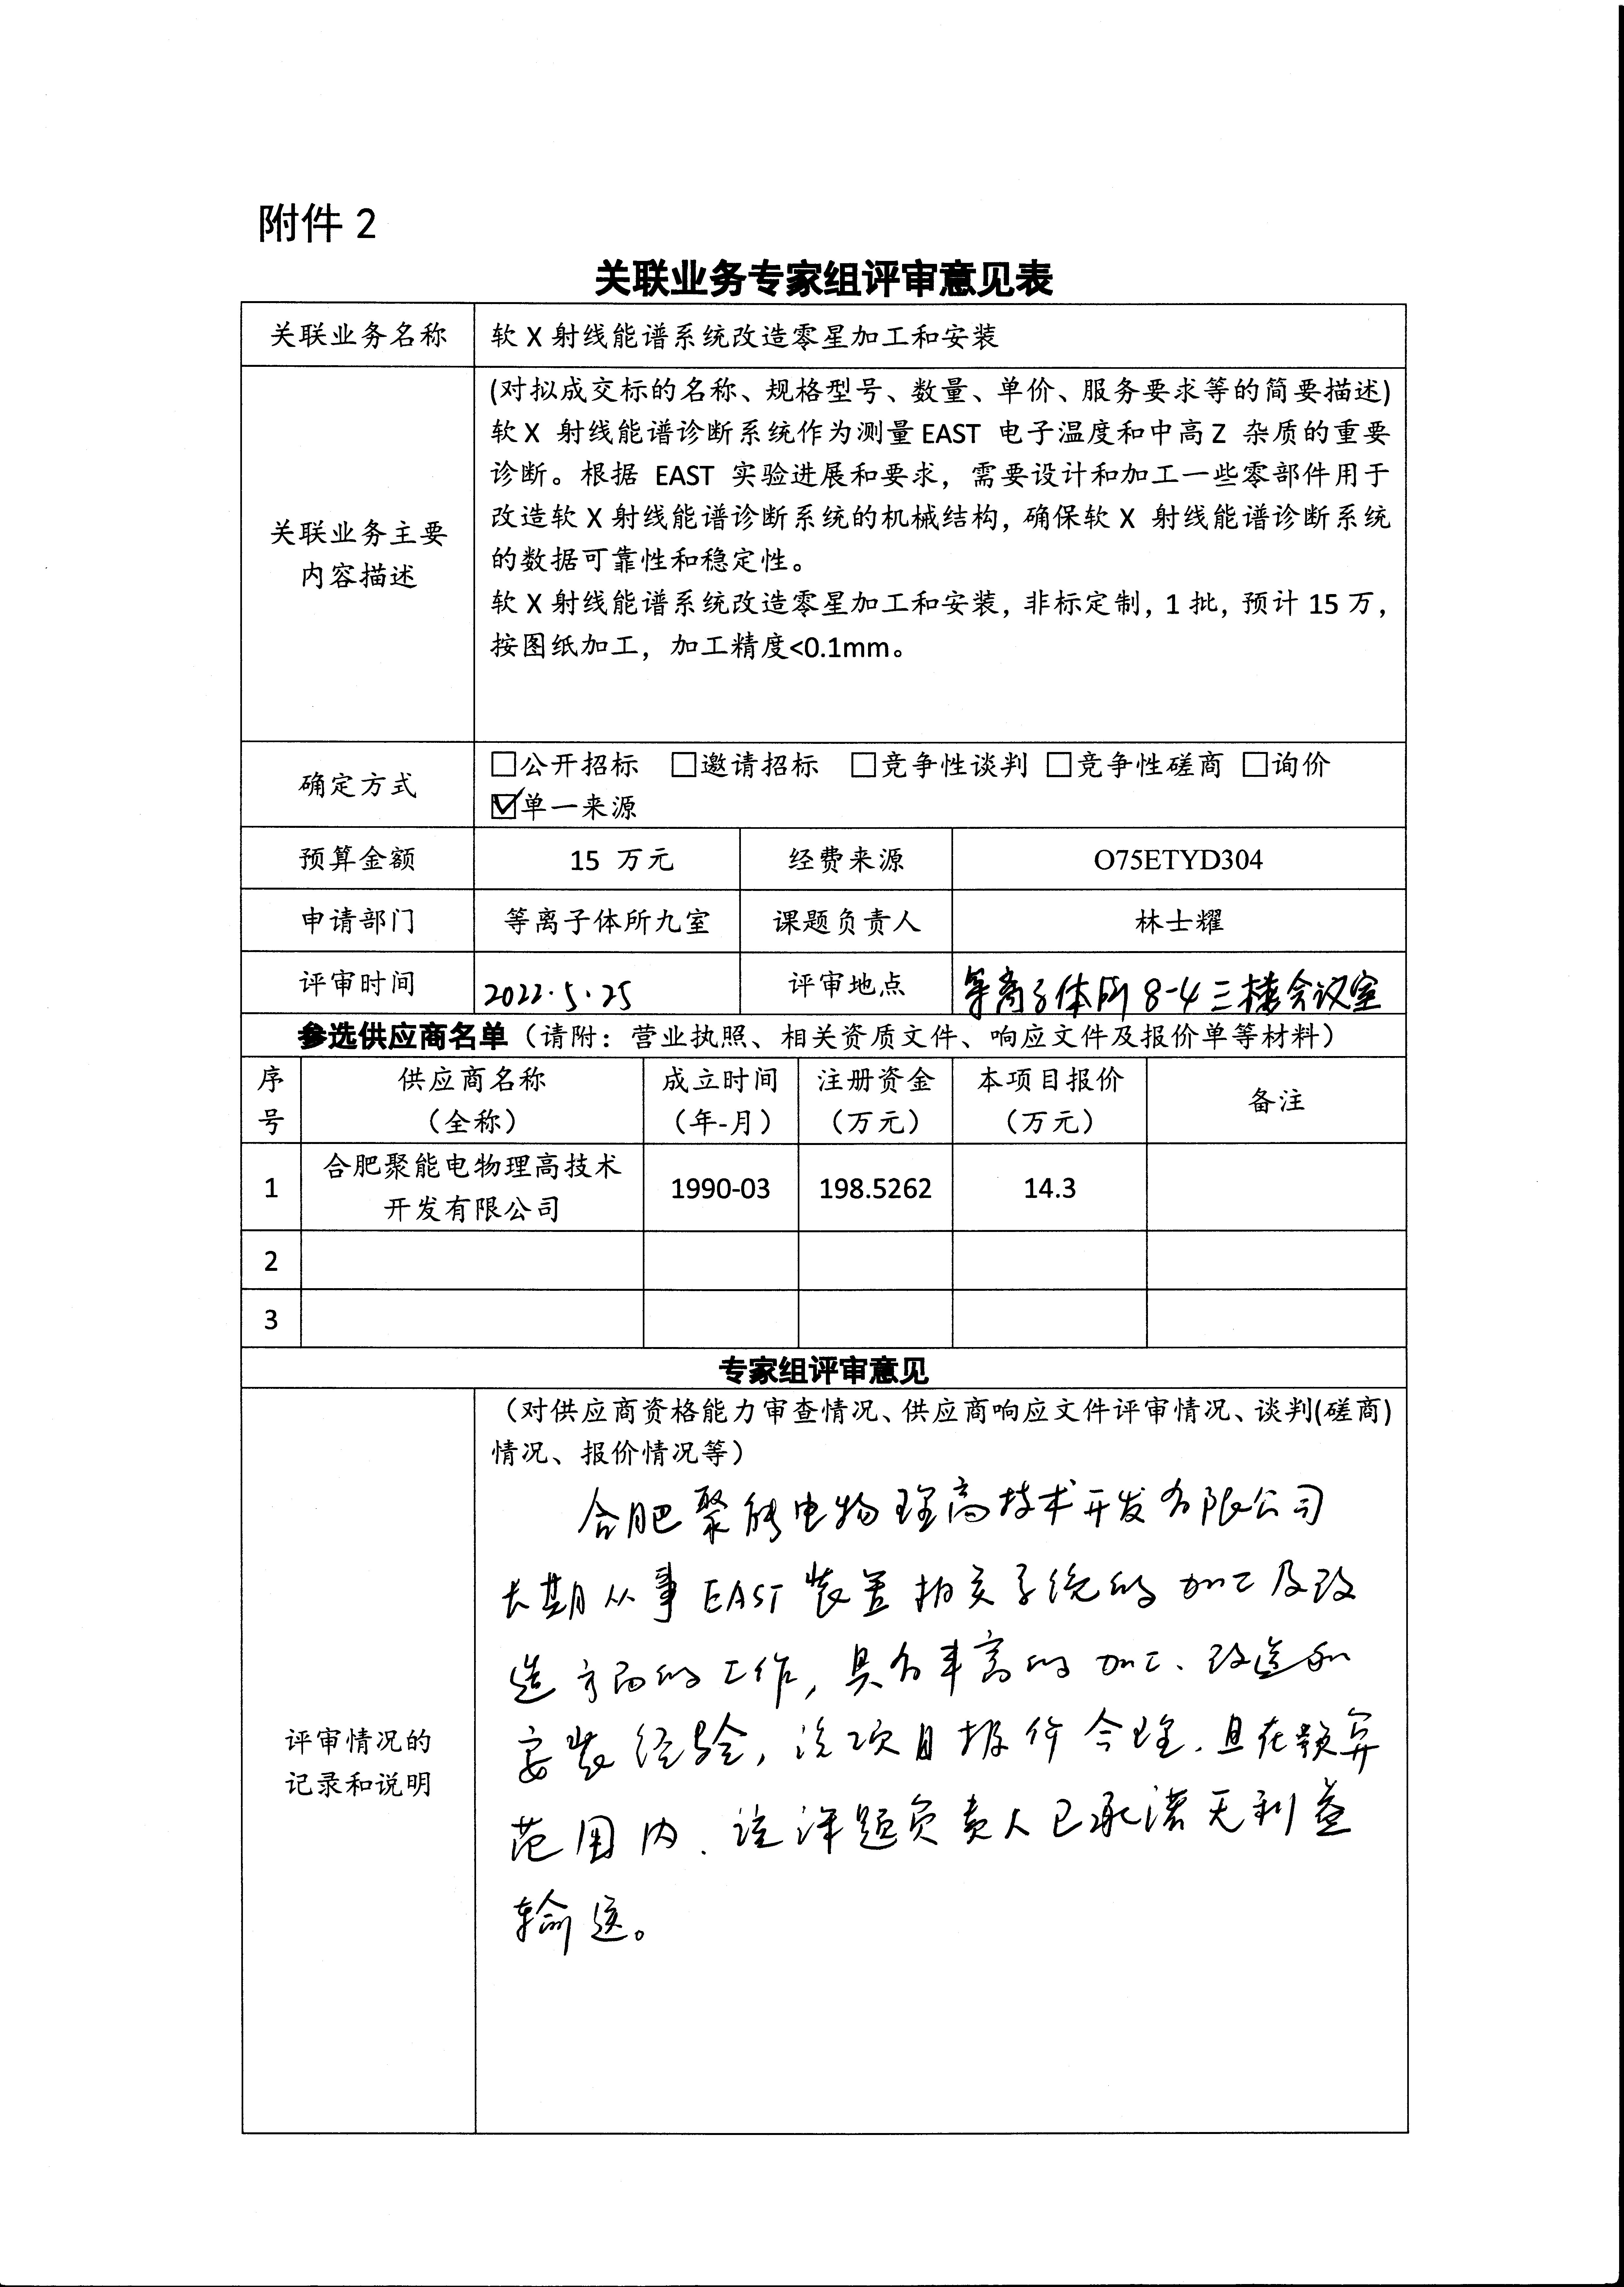 附件 2
关联业务专家组评审意见表
关联业务名称 软 X 射线能谱系统改造零星加工和安装
关联业务主要
内容描述
(对拟成交标的名称、规格型号、数量、单价、服务要求等的简要描述)
软 X 射线能谱诊断系统作为测量 EAST 电子温度和中高 Z 杂质的重要
诊断。根据 EAST 实验进展和要求，需要设计和加工一些零部件用于
改造软 X 射线能谱诊断系统的机械结构，确保软 X 射线能谱诊断系统
的数据可靠性和稳定性。
软 X 射线能谱系统改造零星加工和安装，非标定制，1 批，预计 15 万，
按图纸加工，加工精度<0.1mm。
确定方式
□公开招标 □邀请招标 □竞争性谈判 □竞争性磋商 □询价
☑单一来源
预算金额 15 万元 经费来源 O75ETYD304
申请部门 等离子体所九室 课题负责人 林士耀
评审时间 2022.5.25 评审地点 等离子体所 8-4 三楼会议室
参选供应商名单（请附：营业执照、相关资质文件、响应文件及报价单等材料）
序号 供应商名称（全称） 成立时间（年-月） 注册资金（万元） 本项目报价（万元） 备注
1 合肥聚能电物理高技术开发有限公司 1990-03 198.5262 14.3
2
3
专家组评审意见
评审情况的
记录和说明
（对供应商资格能力审查情况、供应商响应文件评审情况、谈判(磋商)
情况、报价情况等）
合肥聚能电物理高技术开发有限公司
长期从事EAST装置相关系统的加工及改
造方面的工作，具有丰富的加工、改造和
安装经验，该项目报价合理，且在预算
范围内．该课题负责人已承诺无利益
输送。